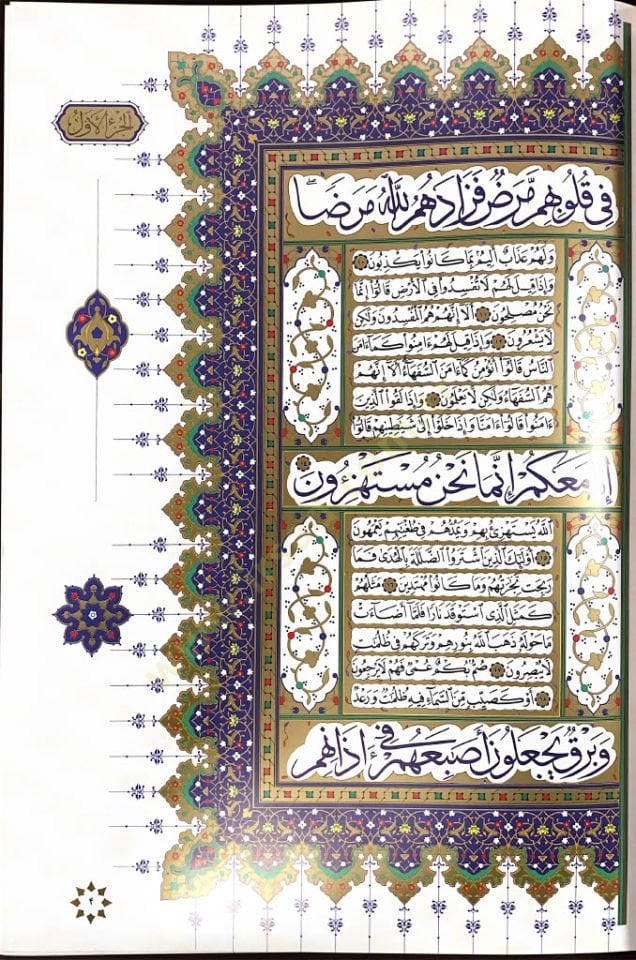 الجزء الأول
فِى قُلُوبِهِم مَّرَضٌ فَزَادَهُمُ ٱللَّهُ مَرَضًا ۖ
وَلَهُمْ عَذَابٌ أَلِيمٌۢ بِمَا كَانُوا۟ يَكْذِبُونَ ١٠
وَإِذَا قِيلَ لَهُمْ لَا تُفْسِدُوا۟ فِى ٱلْأَرْضِ قَالُوٓا۟ إِنَّمَا
نَحْنُ مُصْلِحُونَ ١١ أَلَآ إِنَّهُمْ هُمُ ٱلْمُفْسِدُونَ وَلَٰكِن
لَّا يَشْعُرُونَ ١٢ وَإِذَا قِيلَ لَهُمْ ءَامِنُوا۟ كَمَآ ءَامَنَ
ٱلنَّاسُ قَالُوٓا۟ أَنُؤْمِنُ كَمَآ ءَامَنَ ٱلسُّفَهَآءُ أَلَآ إِنَّهُمْ
هُمُ ٱلسُّفَهَآءُ وَلَٰكِن لَّا يَعْلَمُونَ ١٣ وَإِذَا لَقُوا۟ ٱلَّذِينَ
ءَامَنُوا۟ قَالُوٓا۟ ءَامَنَّا وَإِذَا خَلَوْا۟ إِلَىٰ شَيَٰطِينِهِمْ قَالُوٓا۟
إِنَّا مَعَكُمْ إِنَّمَا نَحْنُ مُسْتَهْزِءُونَ ١٤
ٱللَّهُ يَسْتَهْزِئُ بِهِمْ وَيَمُدُّهُمْ فِى طُغْيَٰنِهِمْ يَعْمَهُونَ
١٥ أُو۟لَٰٓئِكَ ٱلَّذِينَ ٱشْتَرَوُا۟ ٱلضَّلَٰلَةَ بِٱلْهُدَىٰ فَمَا
رَبِحَت تِّجَٰرَتُهُمْ وَمَا كَانُوا۟ مُهْتَدِينَ ١٦ مَثَلُهُمْ
كَمَثَلِ ٱلَّذِى ٱسْتَوْقَدَ نَارًا فَلَمَّآ أَضَآءَتْ
مَا حَوْلَهُۥ ذَهَبَ ٱللَّهُ بِنُورِهِمْ وَتَرَكَهُمْ فِى ظُلُمَٰتٍ
لَّا يُبْصِرُونَ ١٧ صُمٌّۢ بُكْمٌ عُمْىٌ فَهُمْ لَا يَرْجِعُونَ
١٨ أَوْ كَصَيِّبٍ مِّنَ ٱلسَّمَآءِ فِيهِ ظُلُمَٰتٌ وَرَعْدٌ
وَبَرْقٌ يَجْعَلُونَ أَصَٰبِعَهُمْ فِىٓ ءَاذَانِهِم
٤